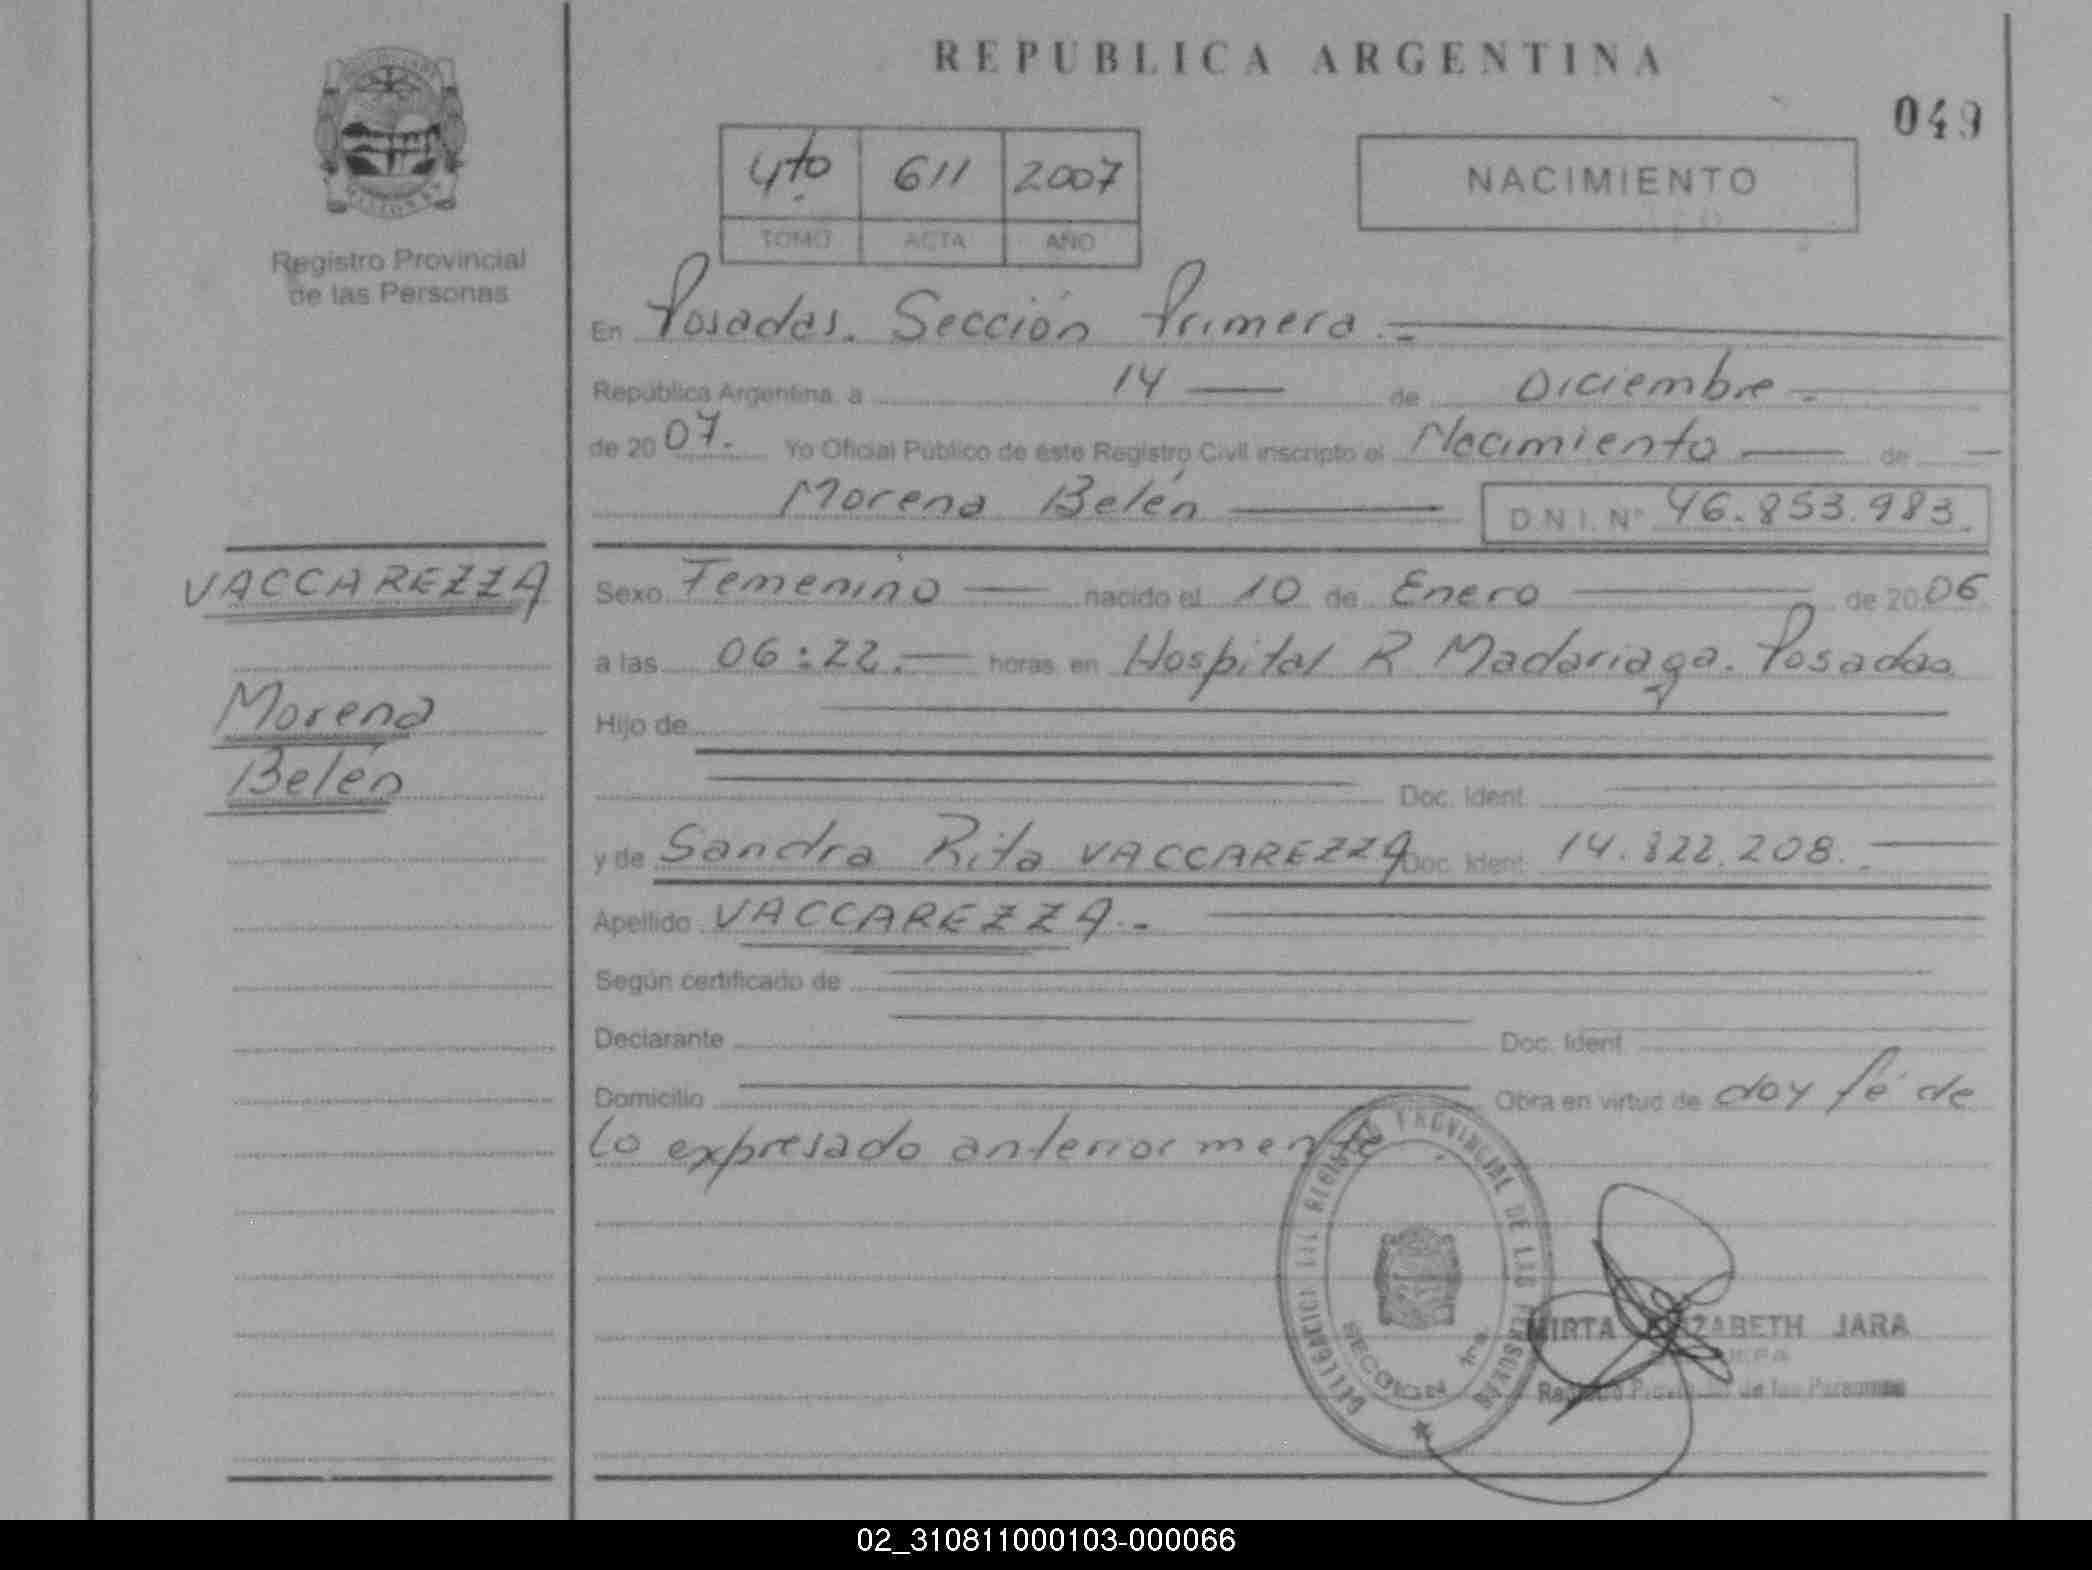 REPUBLICA ARGENTINA
049
4to 611 2007
TOMO ACTA AÑO
NACIMIENTO
Registro Provincial
de las Personas
En Posadas. Sección Primera.-
República Argentina a 14 de Diciembre.
de 2007. Yo Oficial Público de éste Registro Civil inscripto el Nacimiento de
Morena Belén D.N.I. Nº 46.853.983.
VACCAREZZA
Morena
Belén
Sexo Femenino nacido el 10 de Enero de 2006
a las 06:22. horas en Hospital R Madariaga. Posadas
Hijo de
Doc. Ident.
y de Sandra Rita VACCAREZZA Doc. Ident. 14.822.208.
Apellido VACCAREZZA.-
Según certificado de
Declarante Doc. Ident.
Domicilio Obra en virtud de doy fé de
lo expresado anteriormente
REGISTRO PROVINCIAL DE LAS PERSONAS
SECCION 1ra.
MIRTA ELIZABETH JARA
Registro Provincial de las Personas
02_310811000103-000066